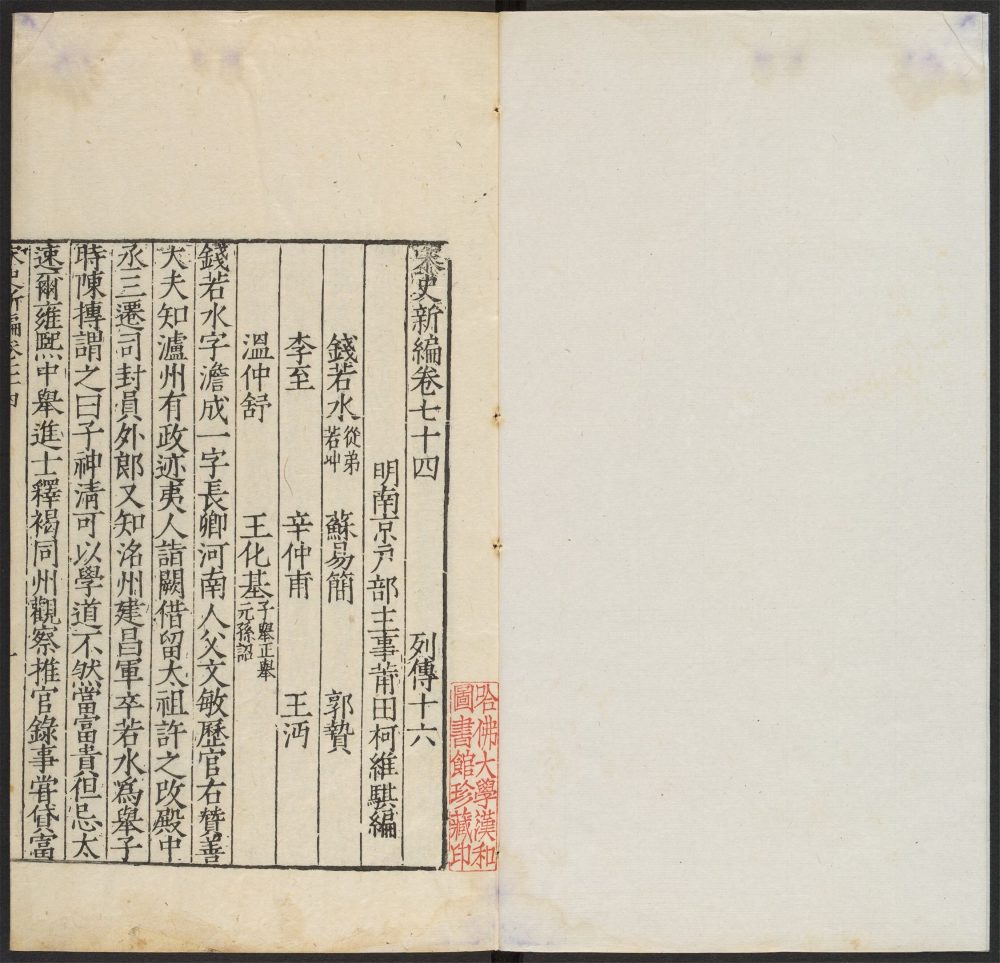 宋史新編卷七十四 列傳十六
明南京戸部主事莆田柯維騏編
錢若水從弟若冲 蘇易簡 郭贄
李至 辛仲甫 王沔
溫仲舒 王化基子舉正舉元孫詔
錢若水字澹成一字長卿河南人父文敏歷官右贊善
大夫知瀘州有政迹夷人詣闕借留太祖許之改殿中
丞三遷司封員外郎又知洺州建昌軍卒若水爲舉子
時陳摶謂之曰子神清可以學道不然當富貴但忌太
速爾雍熙中舉進士釋褐同州觀察推官錄事嘗貸富
宋史新編卷七十四
一
哈佛大學漢和
圖書館珍藏印